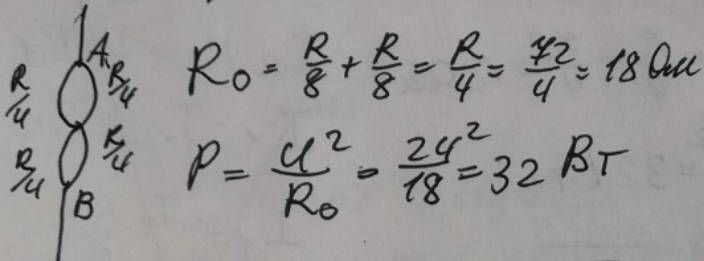 A
R/4 R/4
R/4 R/4
B
R₀ = R/8 + R/8 = R/4 = 72/4 = 18 Ом
P = U²/R₀ = 24²/18 = 32 Вт